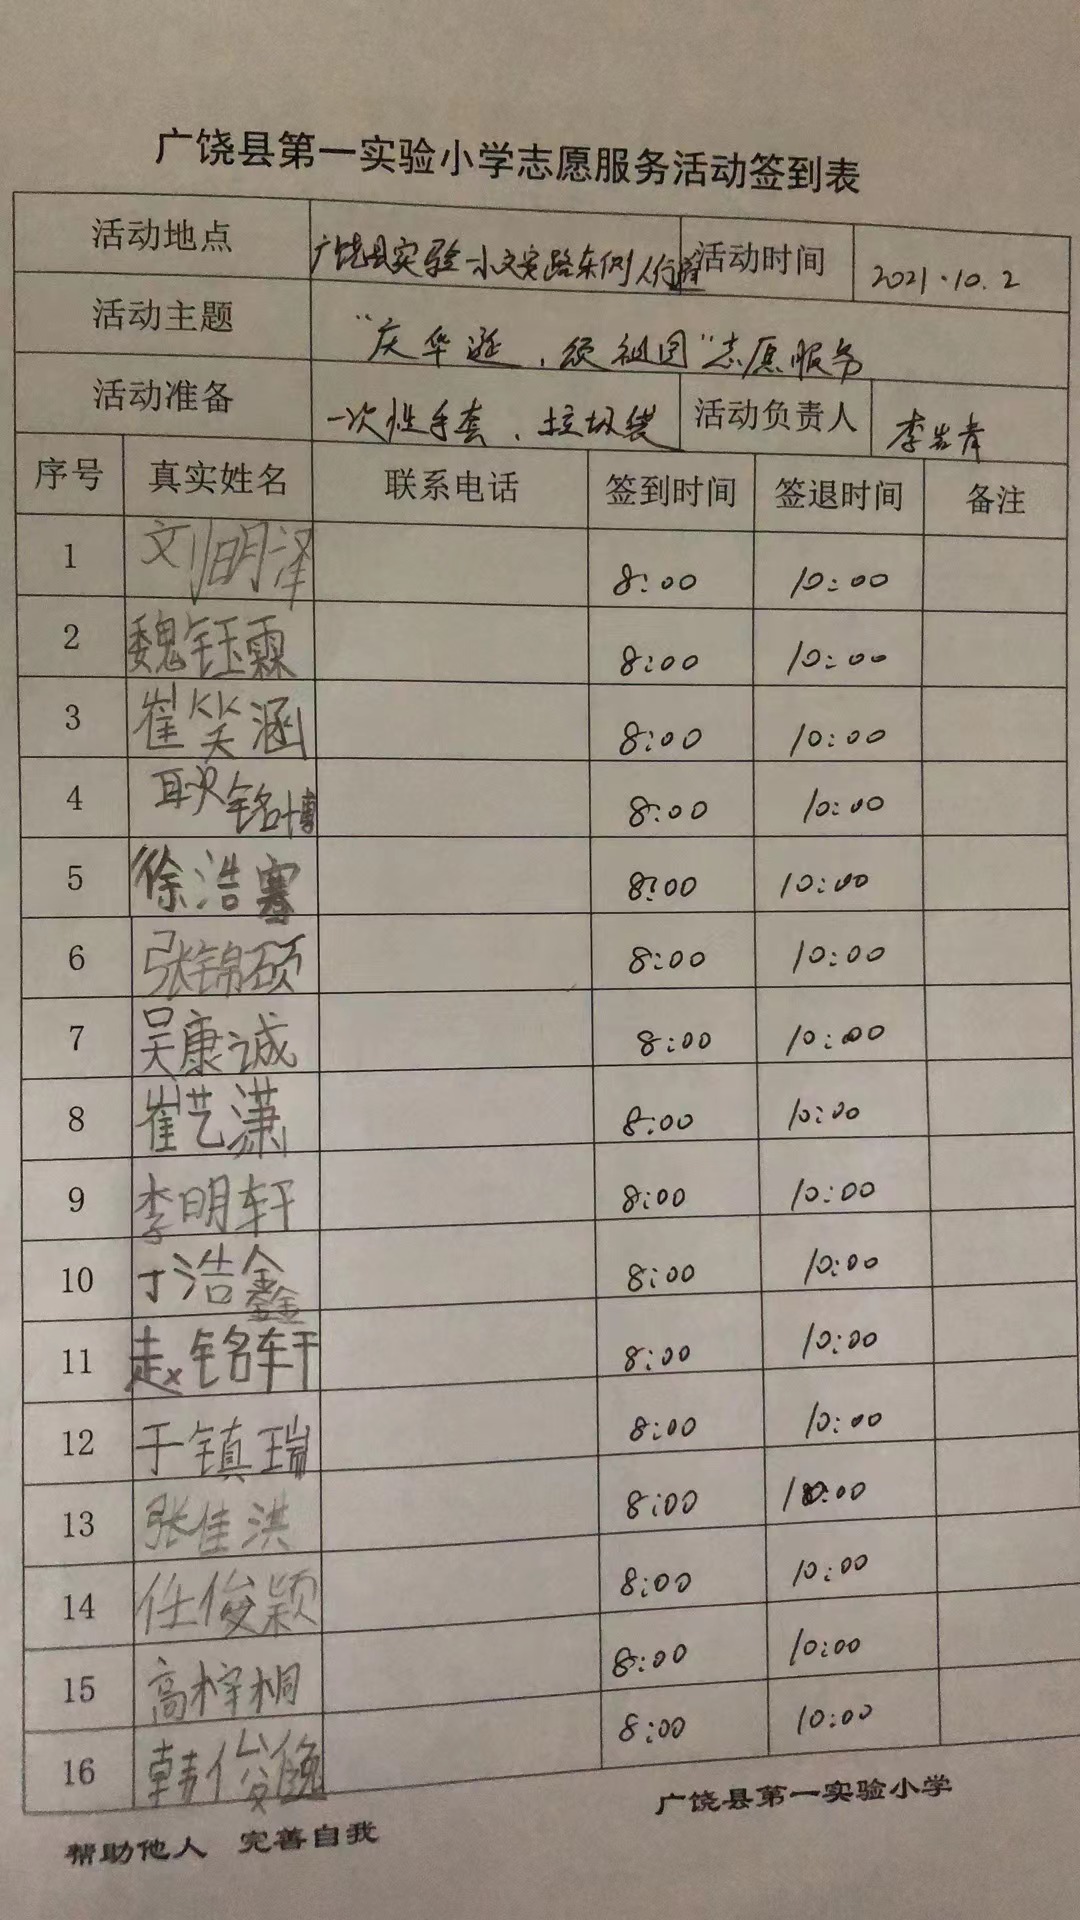 广饶县第一实验小学志愿服务活动签到表
活动地点 广饶县实验一小文安路东侧人行道 活动时间 2021.10.2
活动主题 “庆华诞、颂祖国”志愿服务
活动准备 一次性手套、垃圾袋 活动负责人 李岩青
序号 真实姓名 联系电话 签到时间 签退时间 备注
1 刘明泽 8:00 10:00
2 魏钰霖 8:00 10:00
3 崔笑涵 8:00 10:00
4 耿铭博 8:00 10:00
5 徐浩骞 8:00 10:00
6 张锦硕 8:00 10:00
7 吴康诚 8:00 10:00
8 崔艺潇 8:00 10:00
9 李明轩 8:00 10:00
10 丁浩鑫 8:00 10:00
11 赵铭轩 8:00 10:00
12 于镇瑞 8:00 10:00
13 张佳洪 8:00 10:00
14 任俊颖 8:00 10:00
15 高梓桐 8:00 10:00
16 韩俊逸 8:00 10:00
帮助他人 完善自我 广饶县第一实验小学